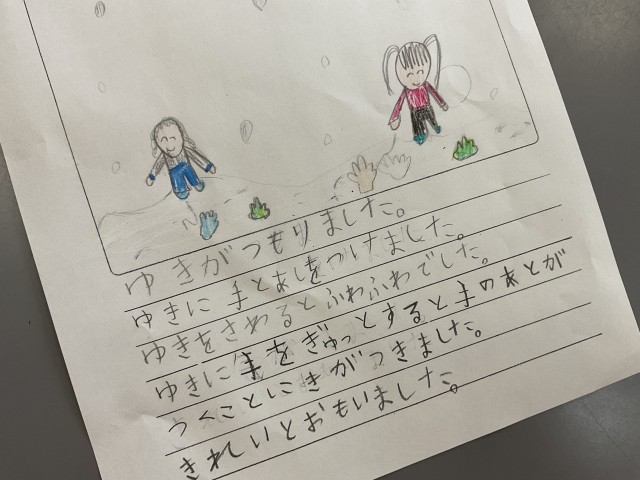 ゆきがつもりました。
ゆきに手とあしをつけました。
ゆきをさわるとふわふわでした。
ゆきに手をぎゅっとすると手のあとが
つくことにきがつきました。
きれいとおもいました。